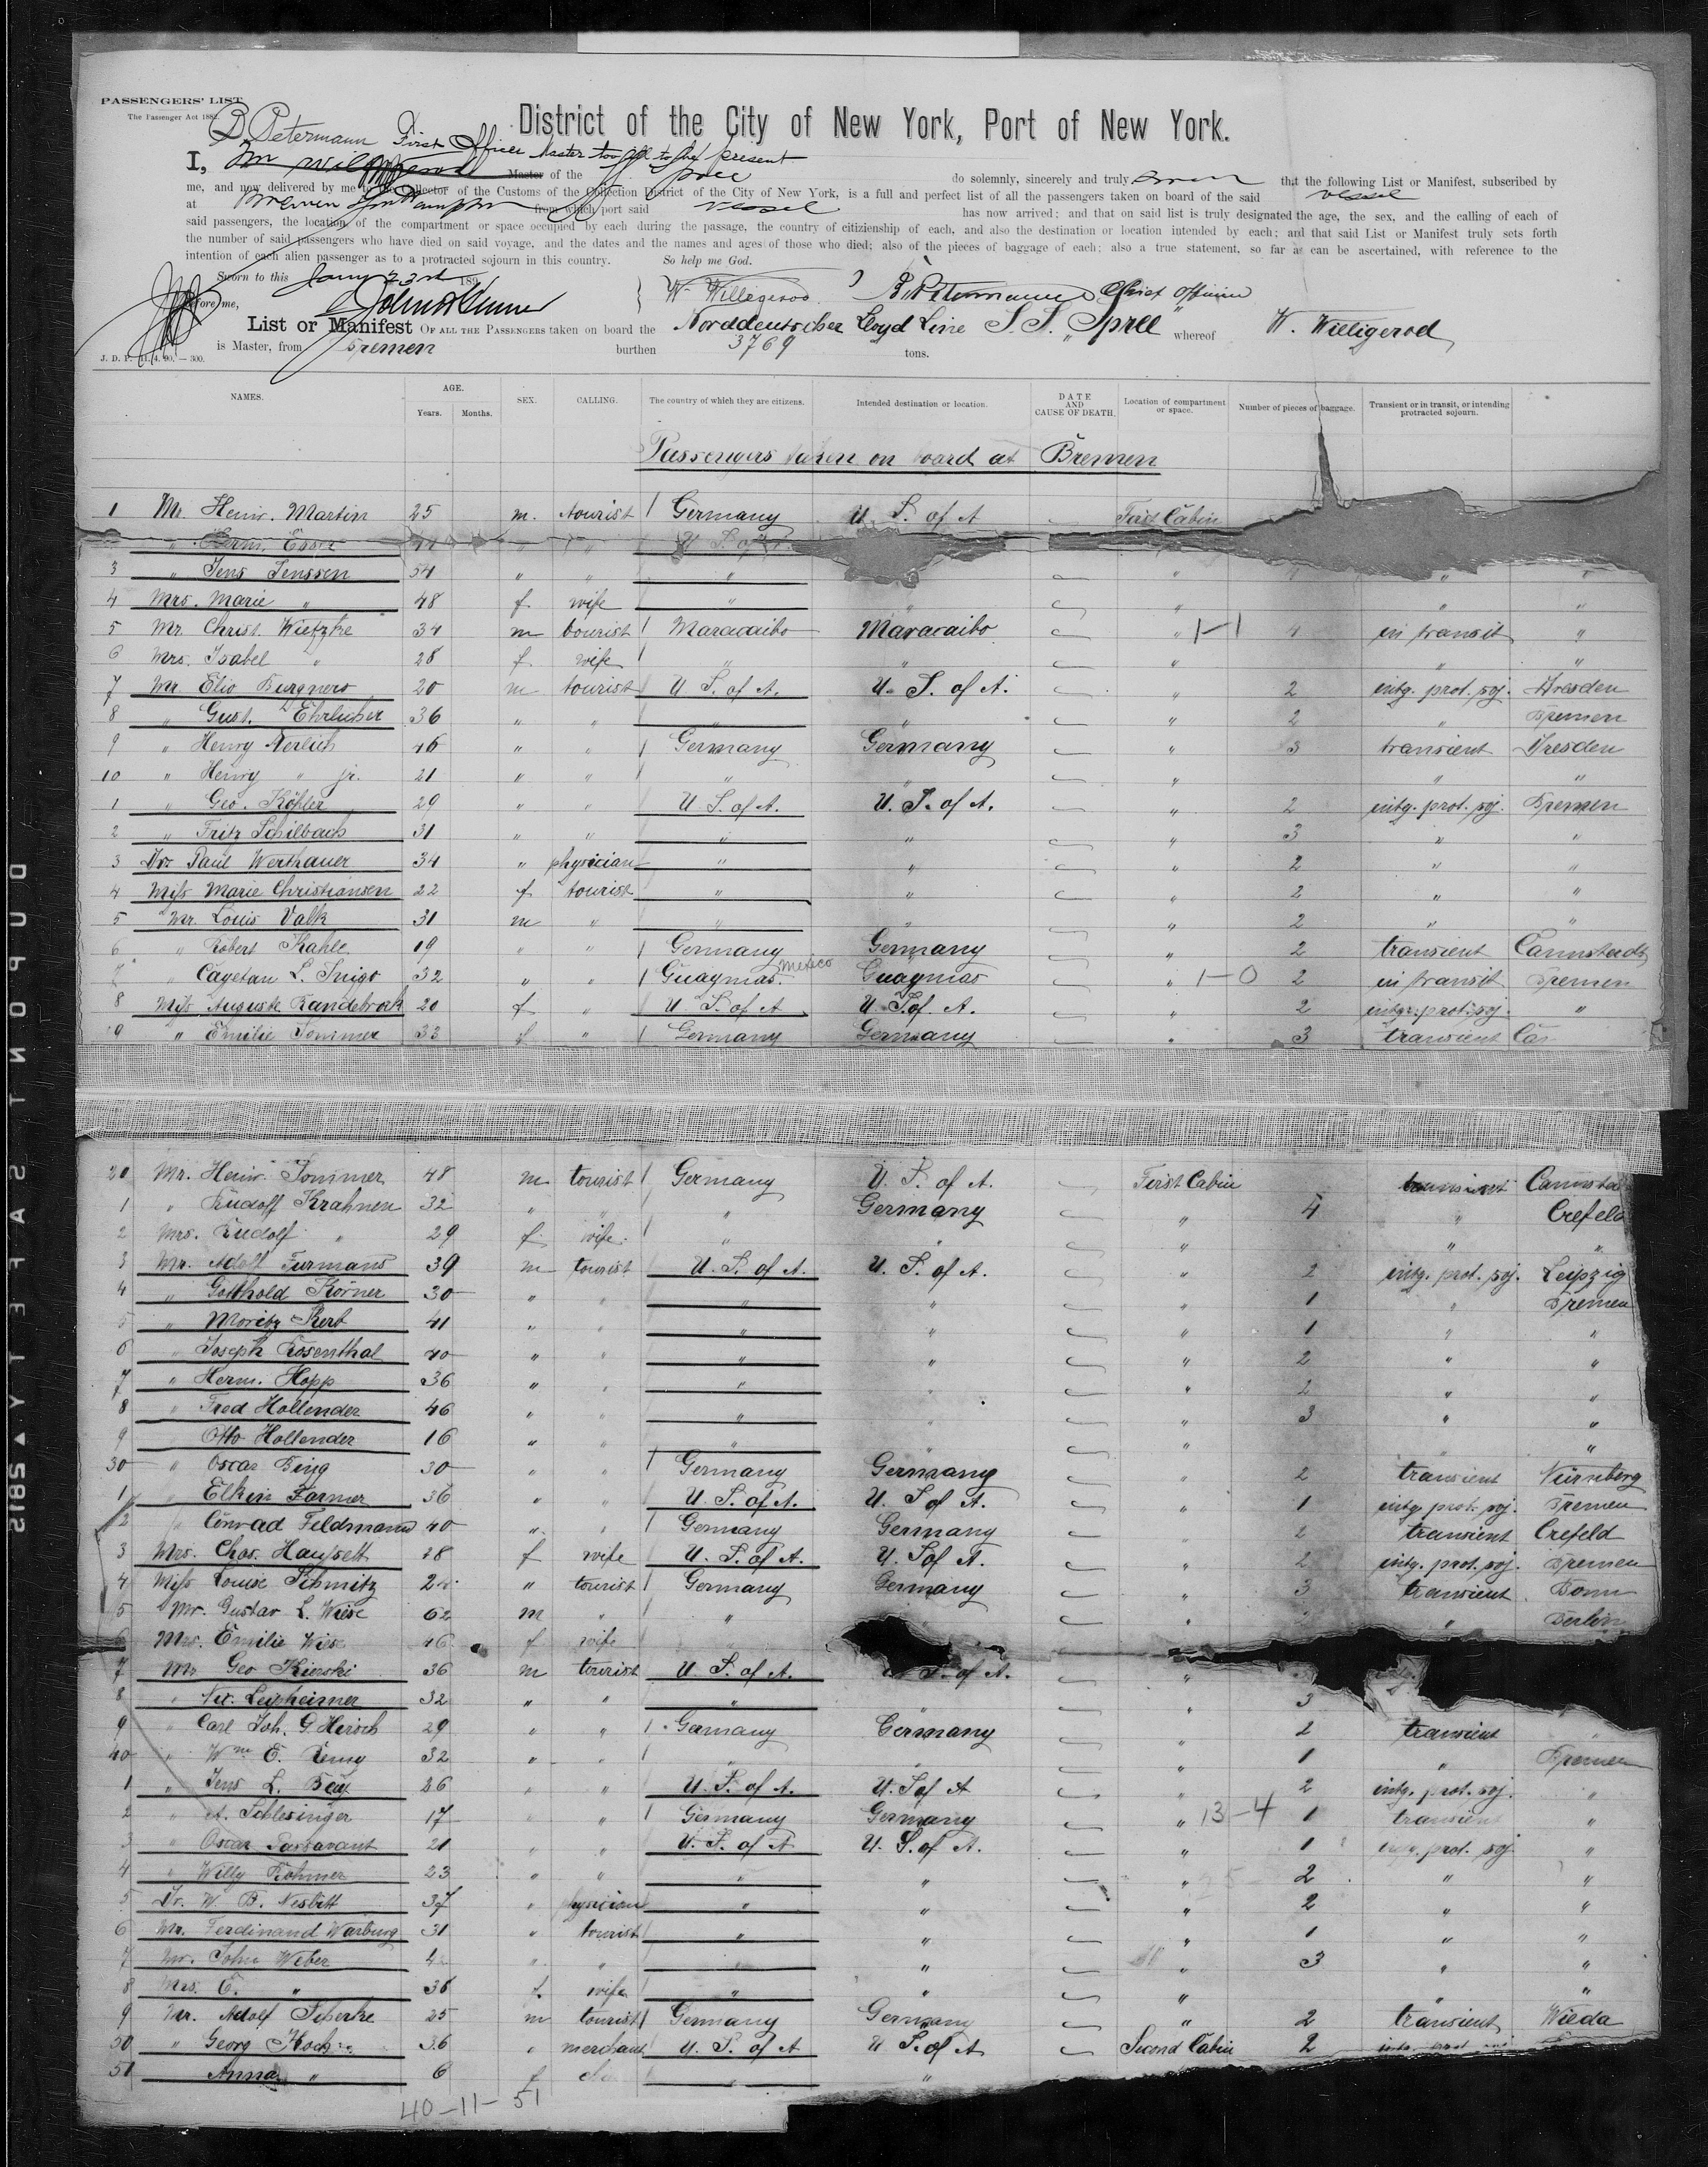 PASSENGERS' LIST
The Passenger Act 1882.
District of the City of New York, Port of New York.
B. Petermann First Officer Master too ill to be present
I, Master of the Spree do solemnly, sincerely and truly swear that the following List or Manifest, subscribed by
me, and now delivered by me to the Collector of the Customs of the Collection District of the City of New York, is a full and perfect list of all the passengers taken on board of the said vessel
at Bremen Southampton from which port said vessel has now arrived; and that on said list is truly designated the age, the sex, and the calling of each of
said passengers, the location of the compartment or space occupied by each during the passage, the country of citizenship of each, and also the destination or location intended by each; and that said List or Manifest truly sets forth
the number of said passengers who have died on said voyage, and the dates and the names and ages of those who died; also of the pieces of baggage of each; also a true statement, so far as can be ascertained, with reference to the
intention of each alien passenger as to a protracted sojourn in this country. So help me God.
Sworn to this Jany 23rd 189
before me, W. Willigerod B. Petermann Chief Officer
List or Manifest OF ALL THE PASSENGERS taken on board the Norddeutscher Lloyd Line S.S. "Spree" whereof W. Willigerod
is Master, from Bremen burthen 3769 tons.
J. D. P. 11. 4. 90. — 300.
NAMES. AGE. Years. Months. SEX. CALLING. The country of which they are citizens. Intended destination or location. DATE AND CAUSE OF DEATH. Location of compartment or space. Number of pieces of baggage. Transient or in transit, or intending protracted sojourn.
Passengers taken on board at Bremen
1 Mr. Heinr. Martin 25 m. tourist Germany U. S. of A First Cabin
" Herm. " " U S. of A.
3 " Jens Jenssen 54 " " " " "
4 Mrs. Marie " 48 f. wife " " " " "
5 Mr. Christ. Wietzke 34 m tourist Maracaibo Maracaibo " 1-1 4 in transit "
6 Mrs. Isabel " 28 f. wife " " " " "
7 Mr Elio Burgners 20 m tourist U S. of A. U. S. of A. " 2 intg. prot. soj. Dresden
8 " Gust. Ehrlicher 36 " " " " " 2 " Bremen
9 " Henry Gerlich 46 " " Germany Germany " 3 transient Dresden
10 " Henry " jr. 21 " " " " " " "
1 " Geo. Köhler 29 " " U S. of A. U. S. of A. " 2 intg. prot. soj. Bremen
2 " Fritz Schilbach 31 " " " " " 3 " "
3 Dr. Paul Werthauer 34 " physician " " " 2 " "
4 Miss Marie Christiansen 22 f tourist " " " 2 " "
5 Mr. Louis Valk 31 m " " " " 2 " "
6 " Robert Kahle 19 " " Germany Germany " 2 transient Cannstadt
7 " Cayetan L. Inigo 32 " " Guaymas. Mexico Guaymas " 1-0 2 in transit Bremen
8 Miss Auguste Randebrock 20 f " U S. of A U. S. of A. " 2 intg. prot. soj. "
9 " Emilie Sommer 33 f " Germany Germany " 3 transient Can
20 Mr. Heinr. Sommer 48 m tourist Germany U. S. of A. First Cabin transient Cannstad
1 " Rudolf Krahnen 32 " " " Germany " 4 " Crefeld
2 Mrs. Rudolf " 29 f. wife. " " " " "
3 Mr. Adolf Furmans 39 m tourist U. S. of A. U. S. of A. " 2 intg. prot. soj. Leipzig
4 " Gotthold Körner 30 " " " " " 1 " Bremen
5 " Moritz Kerb 41 " " " " " 1 " "
6 " Joseph Rosenthal 40 " " " " " 2 " "
7 " Herm. Hopp 36 " " " " " 2 " "
8 " Fred Hollender 46 " " " " " 3 " "
9 Otto Hollender 16 " " " " " "
30 " Oscar Bing 30 " " Germany Germany " 2 transient Nürnberg
1 " Elkin Farmer 36 " " U. S. of A. U. S of A. " 1 intg. prot. soj. Bremen
2 " Conrad Feldmann 40 " " Germany Germany " 2 transient Crefeld
3 Mrs. Chas. Haussett 28 f wife U. S. of A. U. S of A. " 2 intg. prot. soj. Bremen
4 Miss Louise Schmitz " tourist Germany Germany " 3 transient Bonn
5 Mr. Gustav L. Wiese 62 m " " " " Berlin
6 Mrs. Emilie Wiese 46 f wife
7 Mr Geo Kierski 36 m tourist U. S. of A. S. of A. "
8 " Leipheimer 32 " " " " 3
9 " Carl Joh. G. Hirsch 29 " " Germany Germany " 2 transient "
40 " Wm E. Remy 32 " " " " " 1 " Bremen
1 " Jens L. Bay 26 " " U. S. of A. U. S of A " 2 intg. prot. soj. "
2 " A. Schlesinger 17 " " Germany Germany " 13-4 1 transient "
3 " Oscar Passavant 21 " " U. S. of A U. S. of A. " 1 intg. prot. soj. "
4 " Willy Rohmer 23 " " " " " 2 " "
5 Dr. W. B. Nesbitt 37 " physician " " " 2 " "
6 Mr. Ferdinand Warburg 31 " tourist " " " 1 " "
7 Mr. John Weber " " " " " 3 " "
8 Mrs. C. " 38 f. wife " " " " "
9 Mr. Adolf Scherke 25 m tourist Germany Germany " 2 transient Wieda
50 " Georg Koch 36 " merchant U. S. of A U S. of A Second Cabin 2
51 Anna " 6 f " "
40-11-51
DUPONT SAFETY ▲ S185